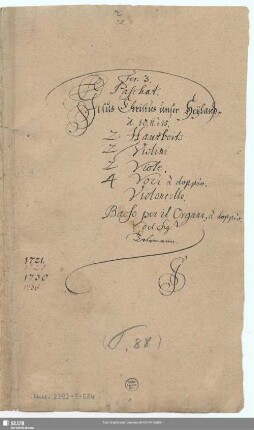 Fer. 3.
Paschat.
Jesus Christus unser Heyland
â
2 Hautbois
2 Violini
2 Viole.
4 Voci â doppio.
Violoncello.
Basso per il Organo, â doppio
del Sigr
Telemann.
1721.
1730
1736
(T. 88)
Mus. 2392-E-584